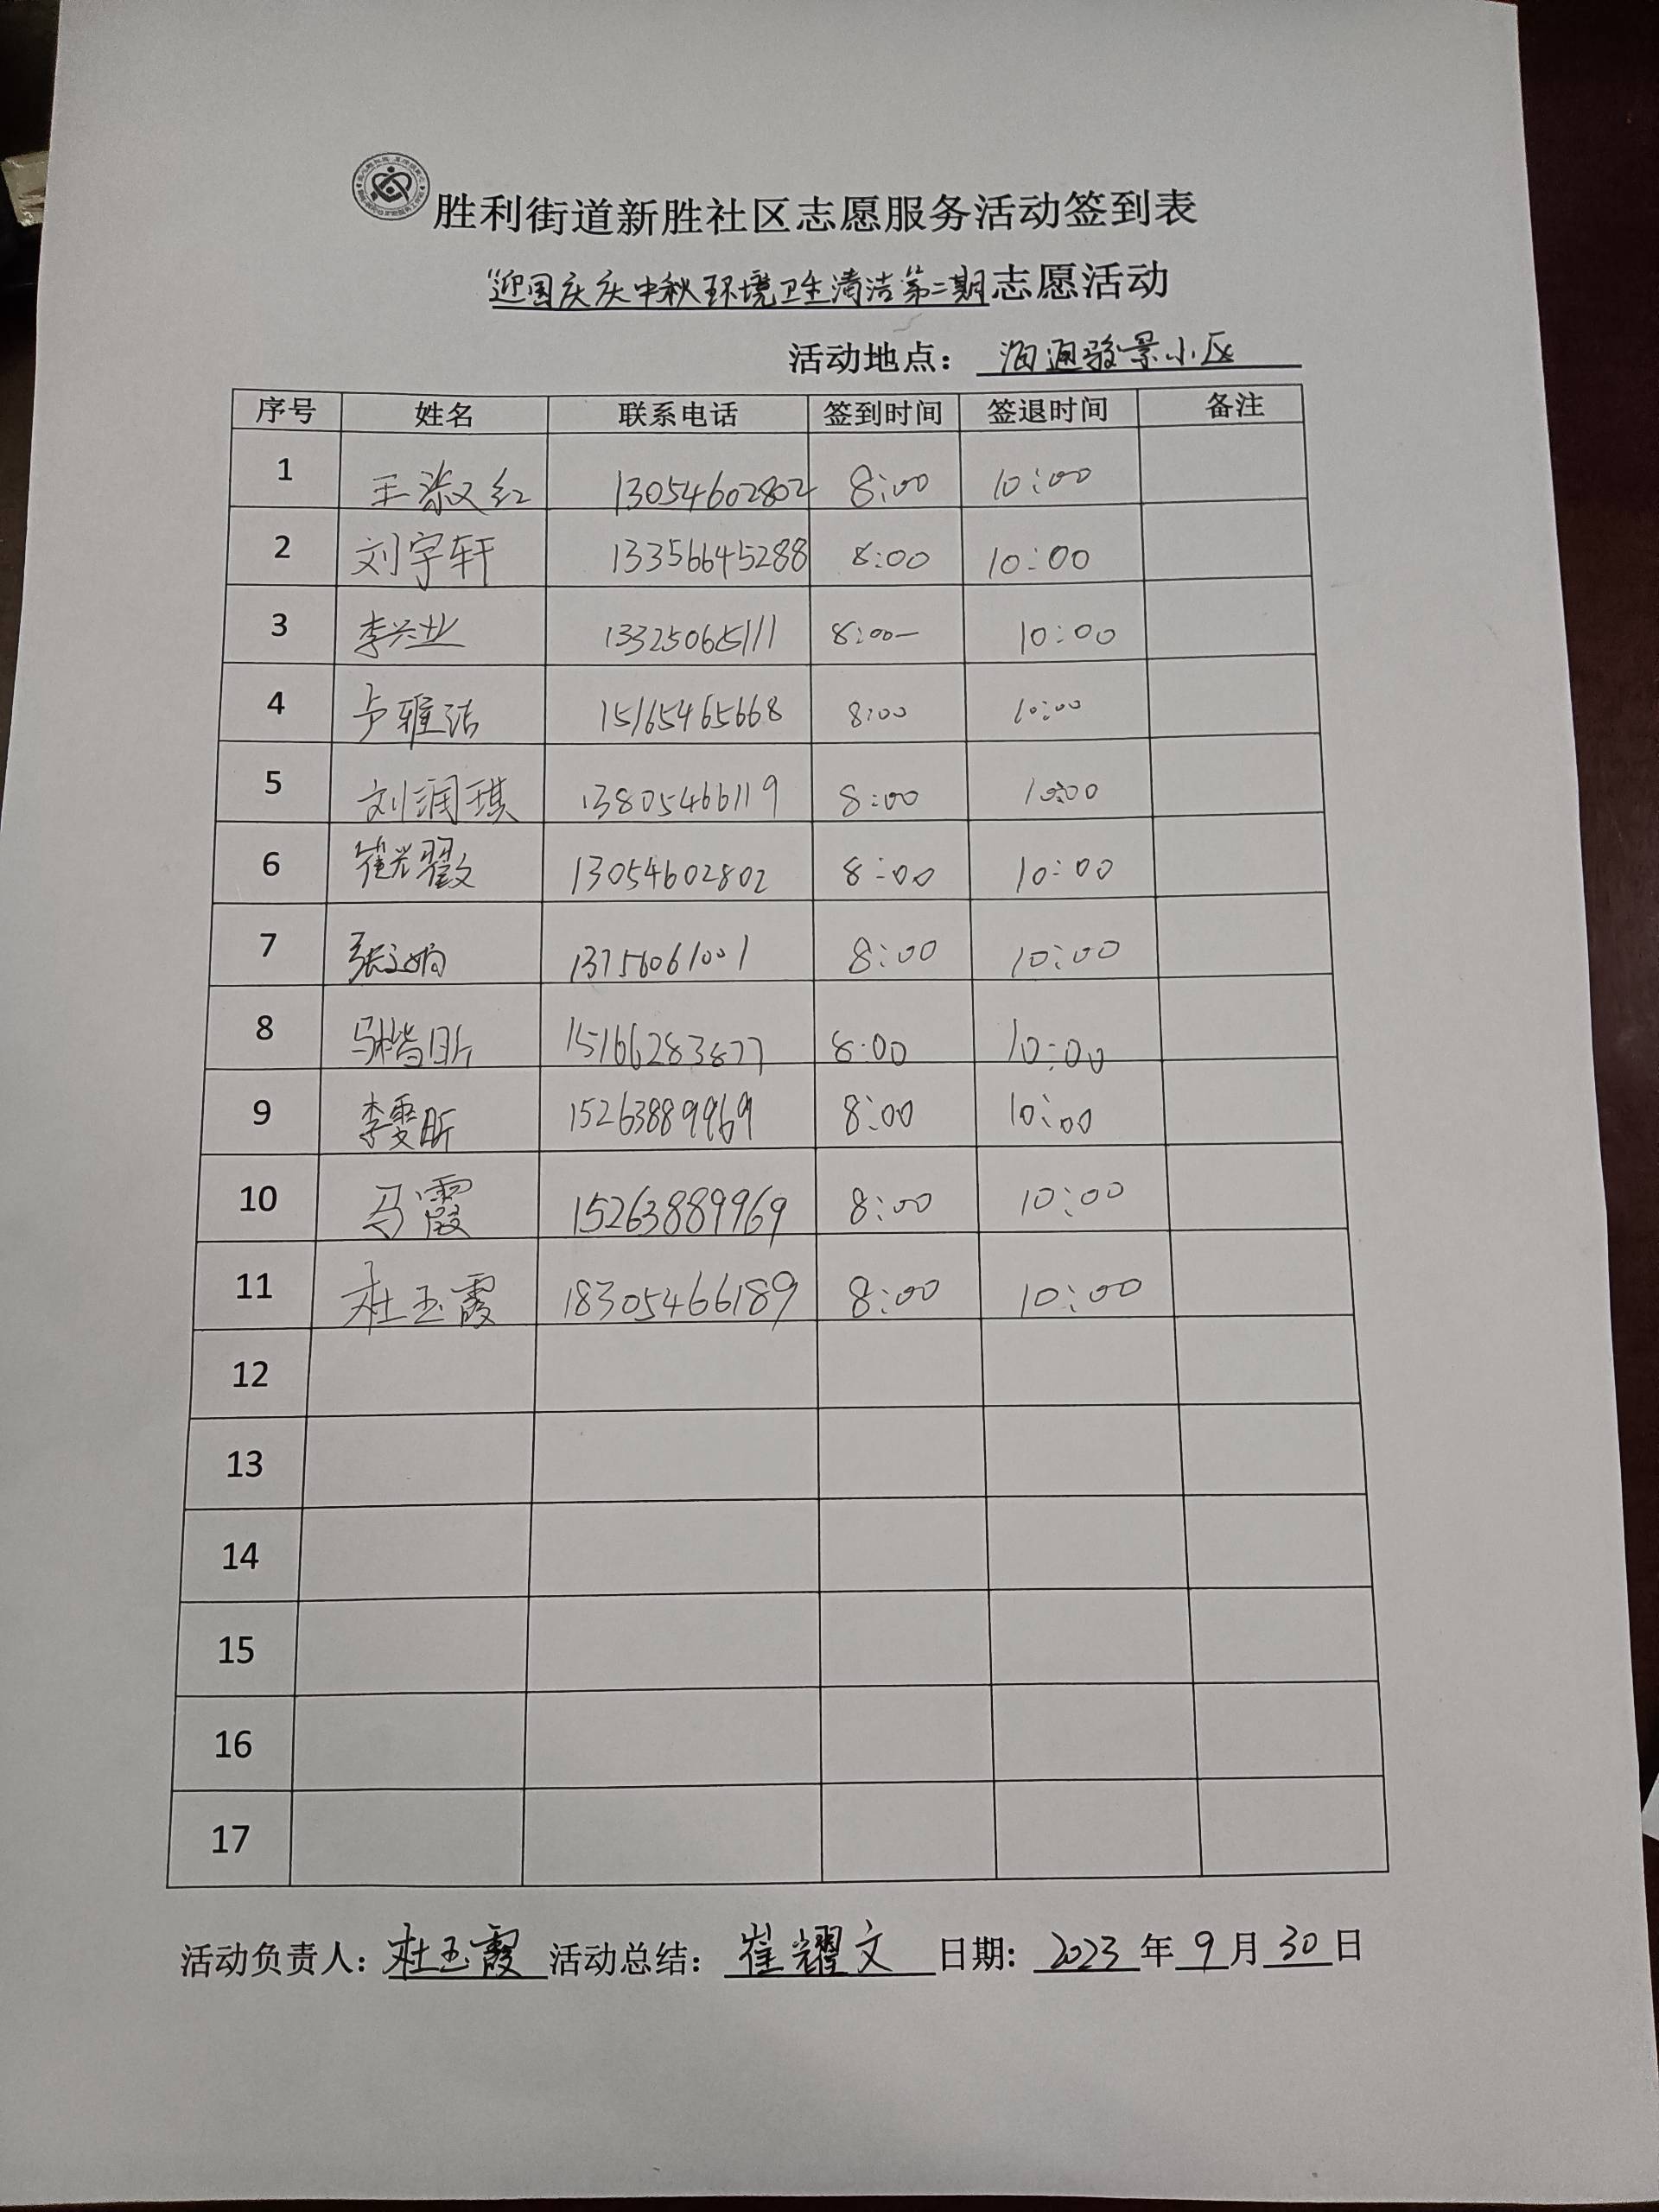 胜利街道新胜社区志愿服务活动签到表
"迎国庆庆中秋环境卫生清洁第二期志愿活动
活动地点： 海通骏景小区
序号 姓名 联系电话 签到时间 签退时间 备注
1 王淑红 13054602802 8:00 10:00
2 刘宇轩 13356645288 8:00 10:00
3 李兴业 13325065111 8:00— 10:00
4 卢雅洁 15165465668 8:00 10:00
5 刘润琪 13805466119 8:00 10:00
6 崔耀文 13054602802 8:00 10:00
7 张文娟 8:00 10:00
8 马楷昕 15166283877 8:00 10:00
9 李雯昕 15263889969 8:00 10:00
10 马霞 15263889969 8:00 10:00
11 杜玉霞 18305466189 8:00 10:00
12
13
14
15
16
17
活动负责人：杜玉霞 活动总结：崔耀文 日期：2023年9月30日